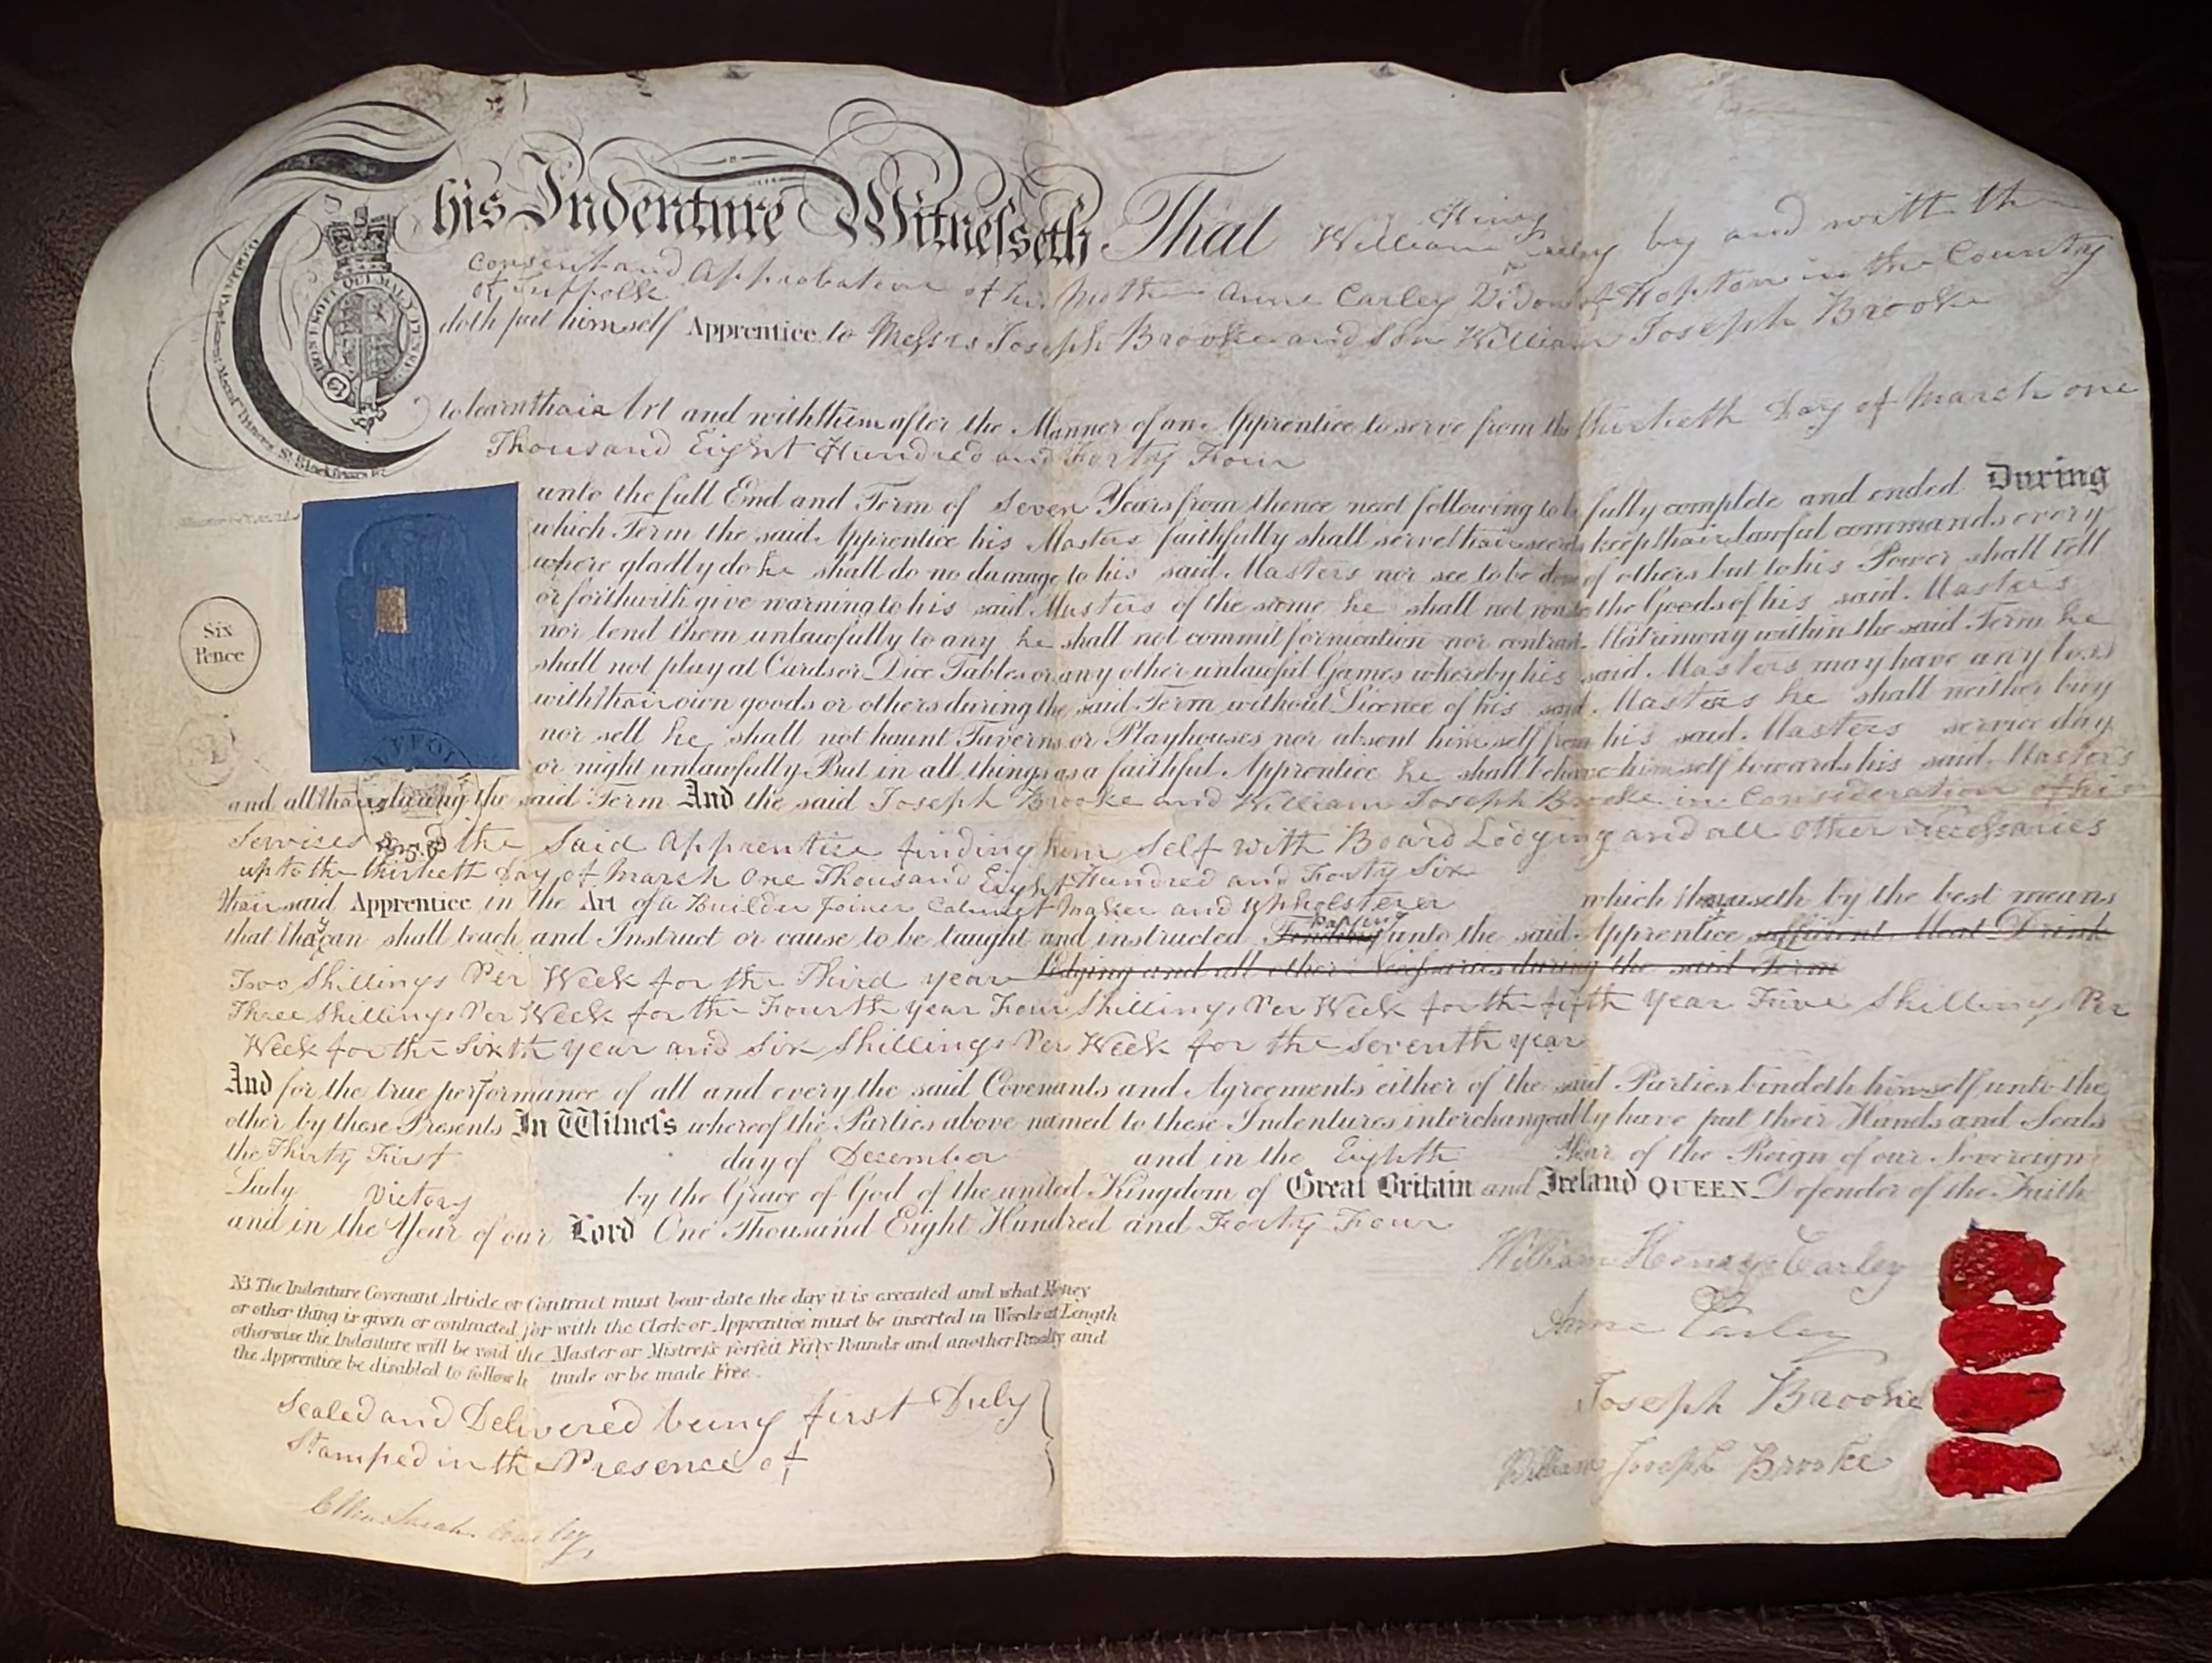 This Indenture Witnesseth That William Henry Carley by and with the
consent and Approbation of his Mother Anne Carley Widow of Hopton in the County
of Suffolk
doth put himself Apprentice to Messrs Joseph Brooke and Son William Joseph Brooke
to learn thair Art and with them after the Manner of an Apprentice to serve from the thirtieth Day of March one
Thousand Eight Hundred and Forty Four
unto the full End and Term of Seven Years from thence next following to be fully complete and ended During
which Term the said Apprentice his Masters faithfully shall serve thair secrets keep thair lawful commands every
where gladly do he shall do no damage to his said Masters nor see to be done of others but to his Power shall tell
or forthwith give warning to his said Masters of the same he shall not waste the Goods of his said Masters
nor lend them unlawfully to any he shall not commit fornication nor contract Matrimony within the said Term he
shall not play at Cards or Dice Tables or any other unlawful Games whereby his said Masters may have any loss
with thair own goods or others during the said Term without Licence of his said Masters he shall neither buy
nor sell he shall not haunt Taverns or Playhouses nor absent himself from his said Masters service day
or night unlawfully But in all things as a faithful Apprentice he shall behave himself towards his said Masters
Six
Pence
and all thairs during the said Term And the said Joseph Brooke and William Joseph Brooke in Consideration of his
Servises and the Said Apprentice finding him Self with Board Lodging and all Other Necessaries
up to the thirtieth Day of March One Thousand Eight Hundred and Forty Six
thair said Apprentice in the Art of a Builder Joiner Cabinet Maker and Upholsterer which they useth by the best means
that they can shall teach and Instruct or cause to be taught and instructed Finding paying unto the said Apprentice sufficient Meat Drink
Two Shillings Per Week for the Third year Lodging and all other Necessaries during the said Term
Three Shillings Per Week for the Fourth year Four Shillings Per Week for the fifth year Five Shillings Per
Week for the Sixth year and Six Shillings Per Week for the Seventh year
And for the true performance of all and every the said Covenants and Agreements either of the said Parties bindeth himself unto the
other by these Presents In Witness whereof the Parties above named to these Indentures interchangeably have put their Hands and Seals
the Thirty First day of December and in the Eighth Year of the Reign of our Sovereign
Lady Victory by the Grace of God of the united Kingdom of Great Britain and Ireland QUEEN Defender of the Faith
and in the Year of our Lord One Thousand Eight Hundred and Forty Four
William Henry Carley
Anne Carley
Joseph Brooke
William Joseph Brooke
NB The Indenture Covenant Article or Contract must bear date the day it is executed and what Money
or other thing is given or contracted for with the Clerk or Apprentice must be inserted in Words at Length
otherwise the Indenture will be void the Master or Mistress forfeit Fifty Pounds and another Penalty and
the Apprentice be disabled to follow h trade or be made Free.
Sealed and Delivered being first Duly
Stamped in the Presence of
Ellen Sarah Carley